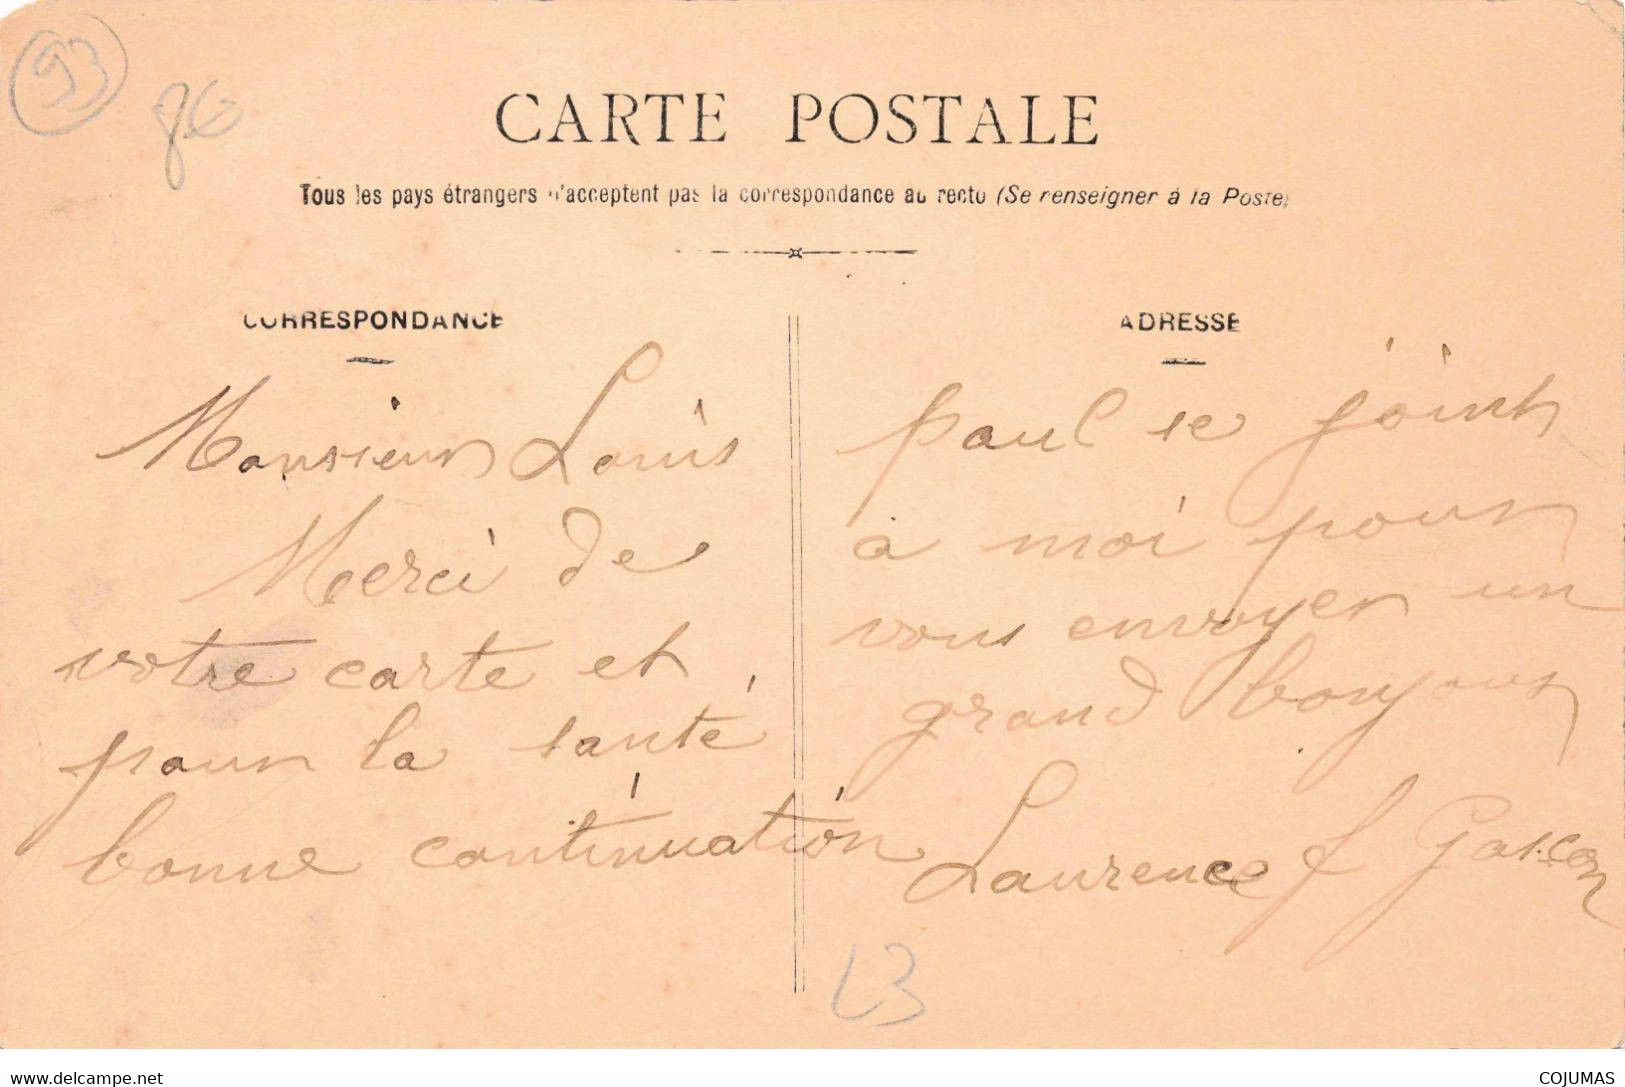 93
CARTE POSTALE
Tous les pays étrangers n'acceptent pas la correspondance au recto (Se renseigner à la Poste)
CORRESPONDANCE
ADRESSE
Monsieur Louis
Merci de
votre carte et
pour la santé
bonne continuation
Paul se joint
à moi pour
vous envoyer un
grand bonjour
Laurence f Gascon
L3
www.delcampe.net
COJUMAS